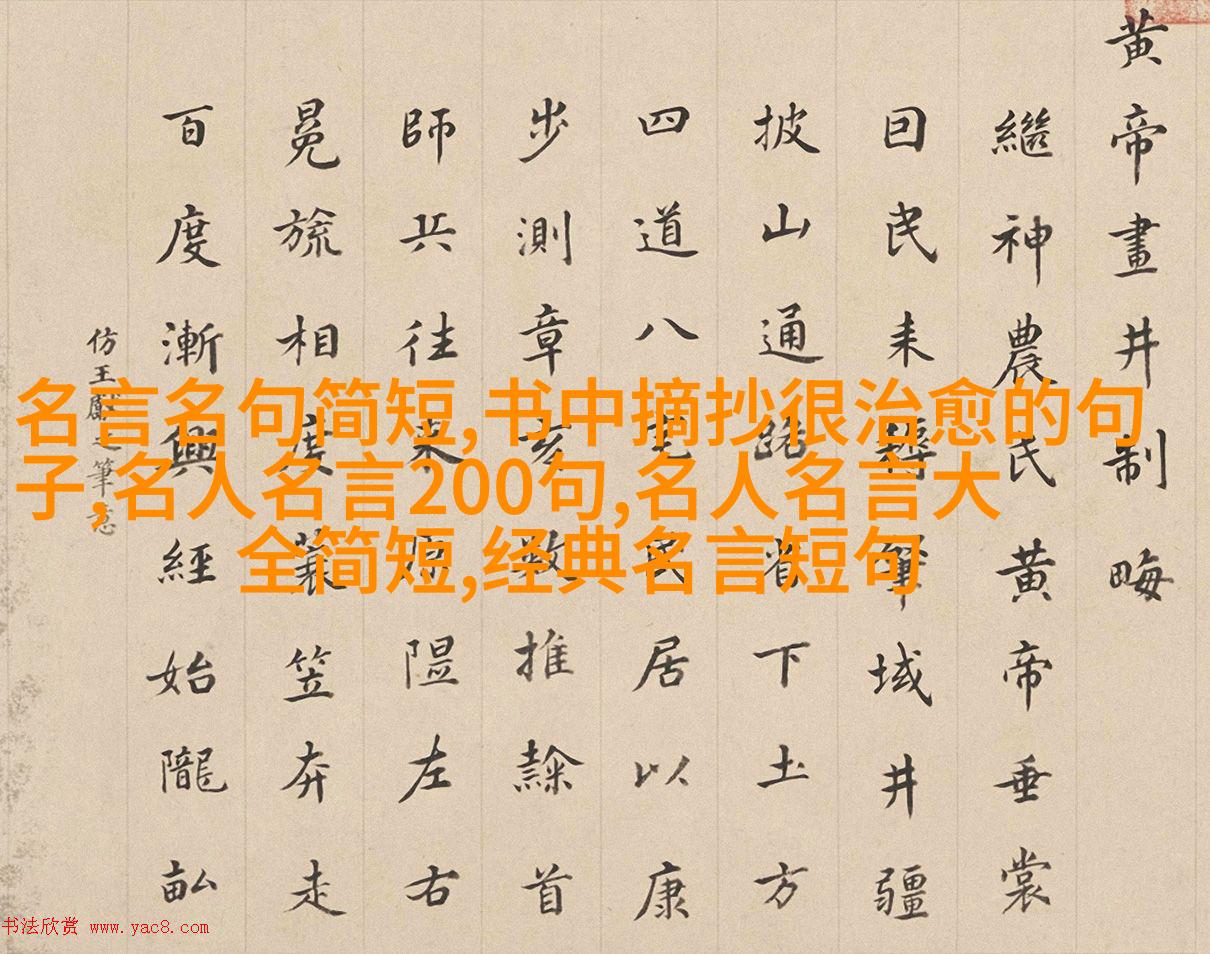 黄帝畫井制畮
繼神農民黄帝垂裳
囙民耒耨肇域井疆
披山通路省下土方
四道八宅民居以康
步測章亥數推隸首
師兵往来隰左右
冕旒相度蓑笠奔走
百度漸興經始隴畝
仿王獻之筆意
名言名句简短,书中摘抄很治愈的句
子,名人名言200句,名人名言大
全简短,经典名言短句
书法欣赏 www.yac8.com